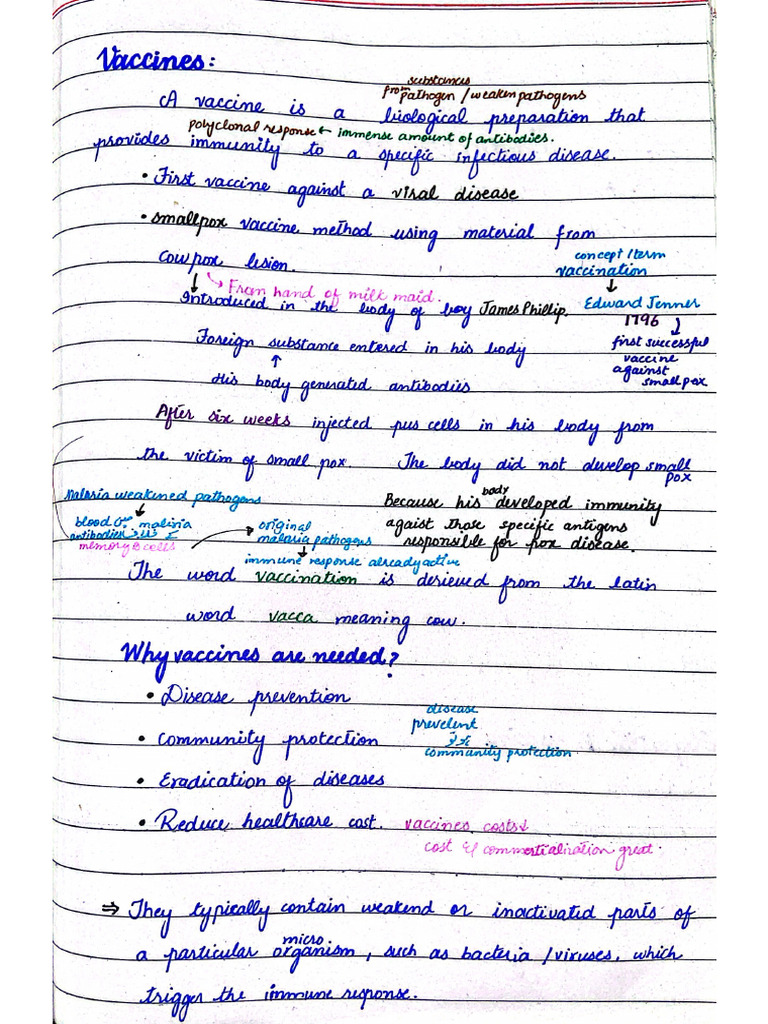 Vaccines:
substances
from pathogen / weaken pathogens
A vaccine is a biological preparation that
polyclonal response ← immense amount of antibodies.
provides immunity to a specific infectious disease.
• First vaccine against a viral disease
• smallpox vaccine method using material from
concept / term
cowpox lesion. vaccination
→ From hand of milk maid.
Introduced in the body of boy James Phillip. Edward Jenner
1796
Foreign substance entered in his body first successful
vaccine
against
small pox
His body generated antibodies
After six weeks injected pus cells in his body from
the victim of small pox. The body did not develop small
pox
Malaria weakened pathogens
Because his body developed immunity
blood malaria → original agaist those specific antigens
antibodies malaria pathogens responsible for pox disease.
memory cells
immune response already active
The word vaccination is derieved from the latin
word vacca meaning cow.
Why vaccines are needed?
• Disease prevention
disease
prevelent
• Community protection
community protection
• Eradication of diseases
• Reduce healthcare cost. vaccines costs↓
cost commertialization great
⇒ They typically contain weakend or inactivated parts of
a particular micro organism, such as bacteria / viruses, which
trigger the immune response.